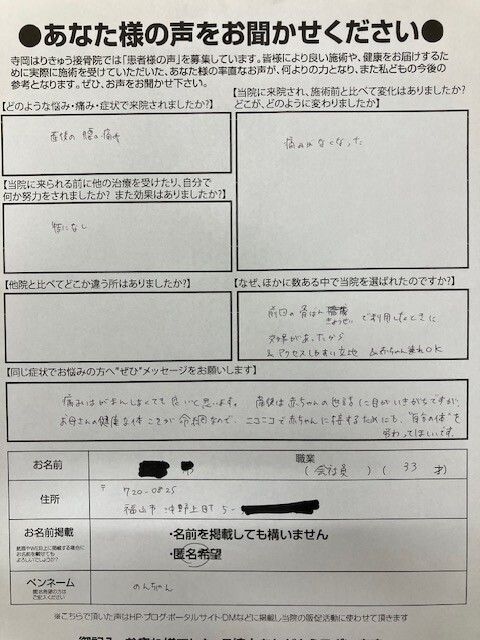 ●あなた様の声をお聞かせください●
寺岡はりきゅう接骨院では「患者様の声」を募集しています。皆様により良い施術や、健康をお届けするた
めに実際に施術を受けていただいた、あなた様の率直なお声が、何よりの力となり、また私どもの今後の
参考となります。ぜひ、お声をお聞かせ下さい。
【どのような悩み・痛み・症状で来院されましたか?】
産後の腰の痛み
【当院に来られる前に他の治療を受けたり、自分で
何か努力をされましたか? また効果はありましたか?】
特になし
【他院と比べてどこか違う所はありましたか?】
【当院に来院され、施術前と比べて変化はありましたか?
どこが、どのように変わりましたか】
痛みがなくなった
【なぜ、ほかに数ある中で当院を選ばれたのですか?】
前回の骨ばん
きょうせい
で利用したときに
効果があったから
&アクセスしやすい立地 &赤ちゃん連れOK
【同じ症状でお悩みの方へ"ぜひ"メッセージをお願いします】
痛みはがまんしなくても良いと思います。産後は赤ちゃんのお世話に目がいきがちですが、
お母さんの健康な体こそが命綱なので、ニコニコで赤ちゃんに接するためにも、"自分の体"を
労わってほしいです。
お名前
職業
(会社員) (33 才)
住所
〒720-0825
福山市沖野上町5-
お名前掲載
紙面やWEB上に掲載する場合に
お名前を載せても
よろしいでしょうか?
・名前を掲載しても構いません
・匿名希望
ペンネーム
匿名希望の方は
ご記入ください
のんちゃん
※こちらで頂いた声はHP・ブログ・ポータルサイト・DMなどに掲載し当院の販促活動に使わせて頂きます